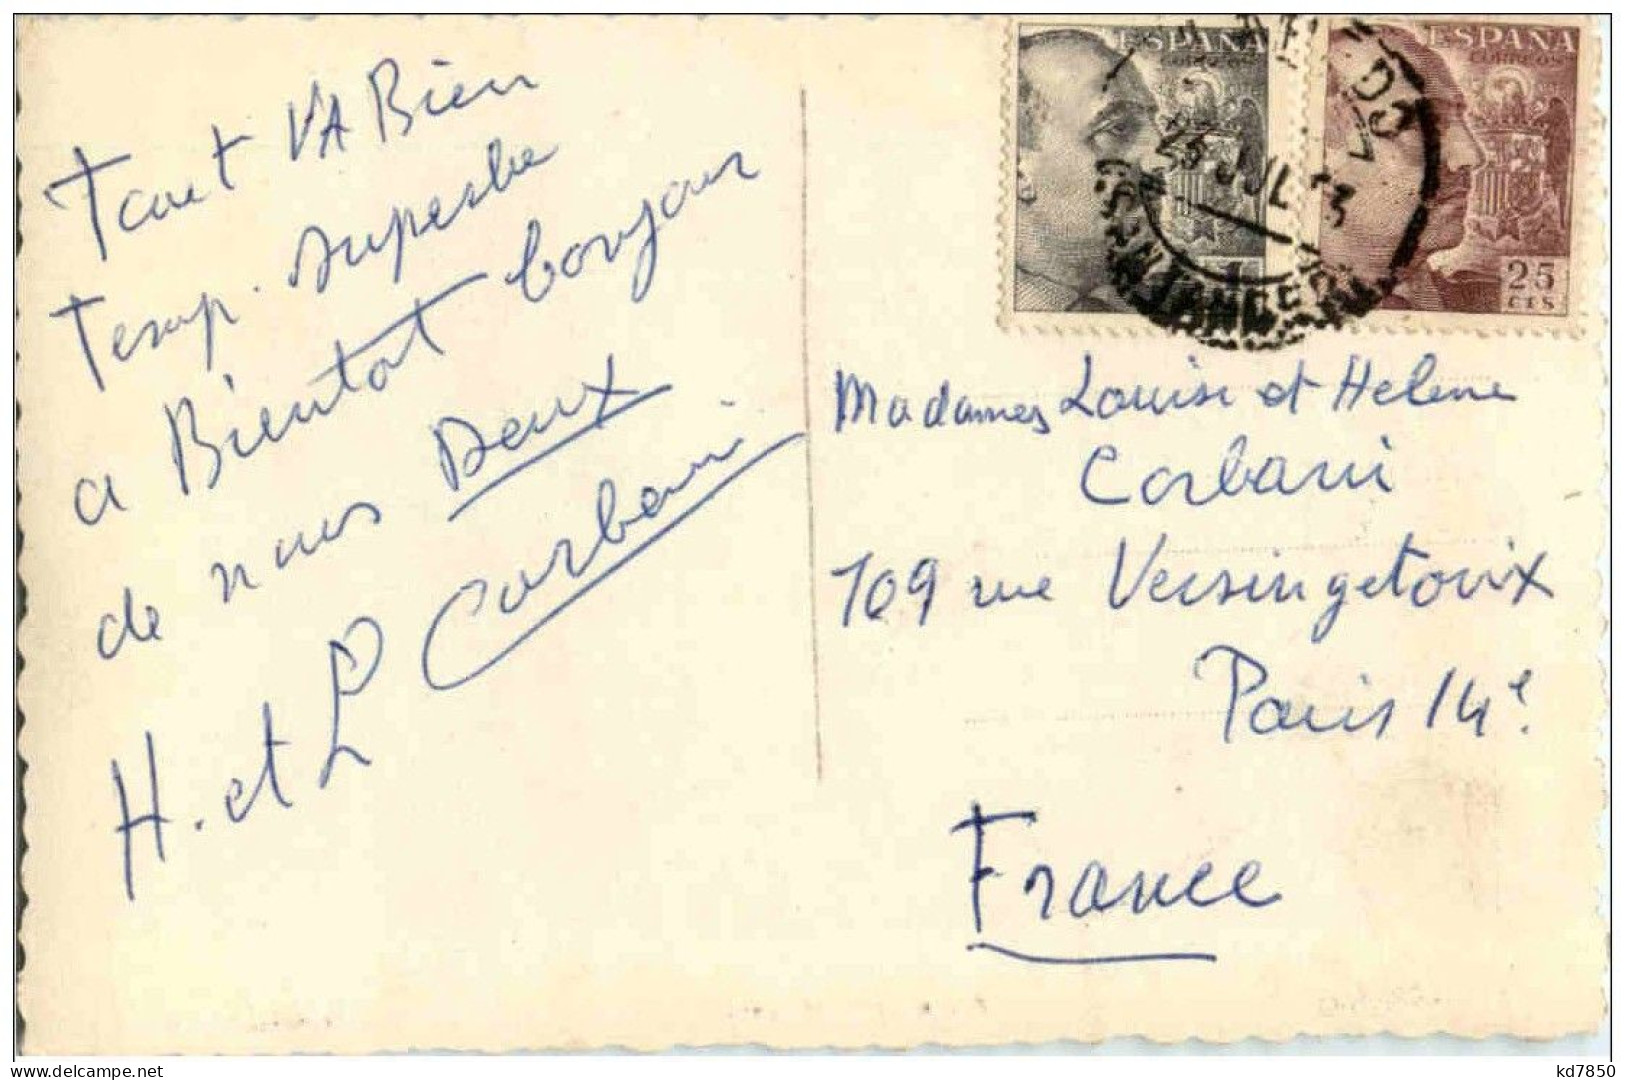 Tout VA Bien
Temp. superbe
a Bientot bonjour
de nous Deux
H. et L Corbani
ESPANA
CORREOS
ESPANA
CORREOS
25
CTS
25 JUL
SANTANDER
Madames Louise et Helene
Corbani
109 rue Versingetorix
Paris 14e.
France
kd7850